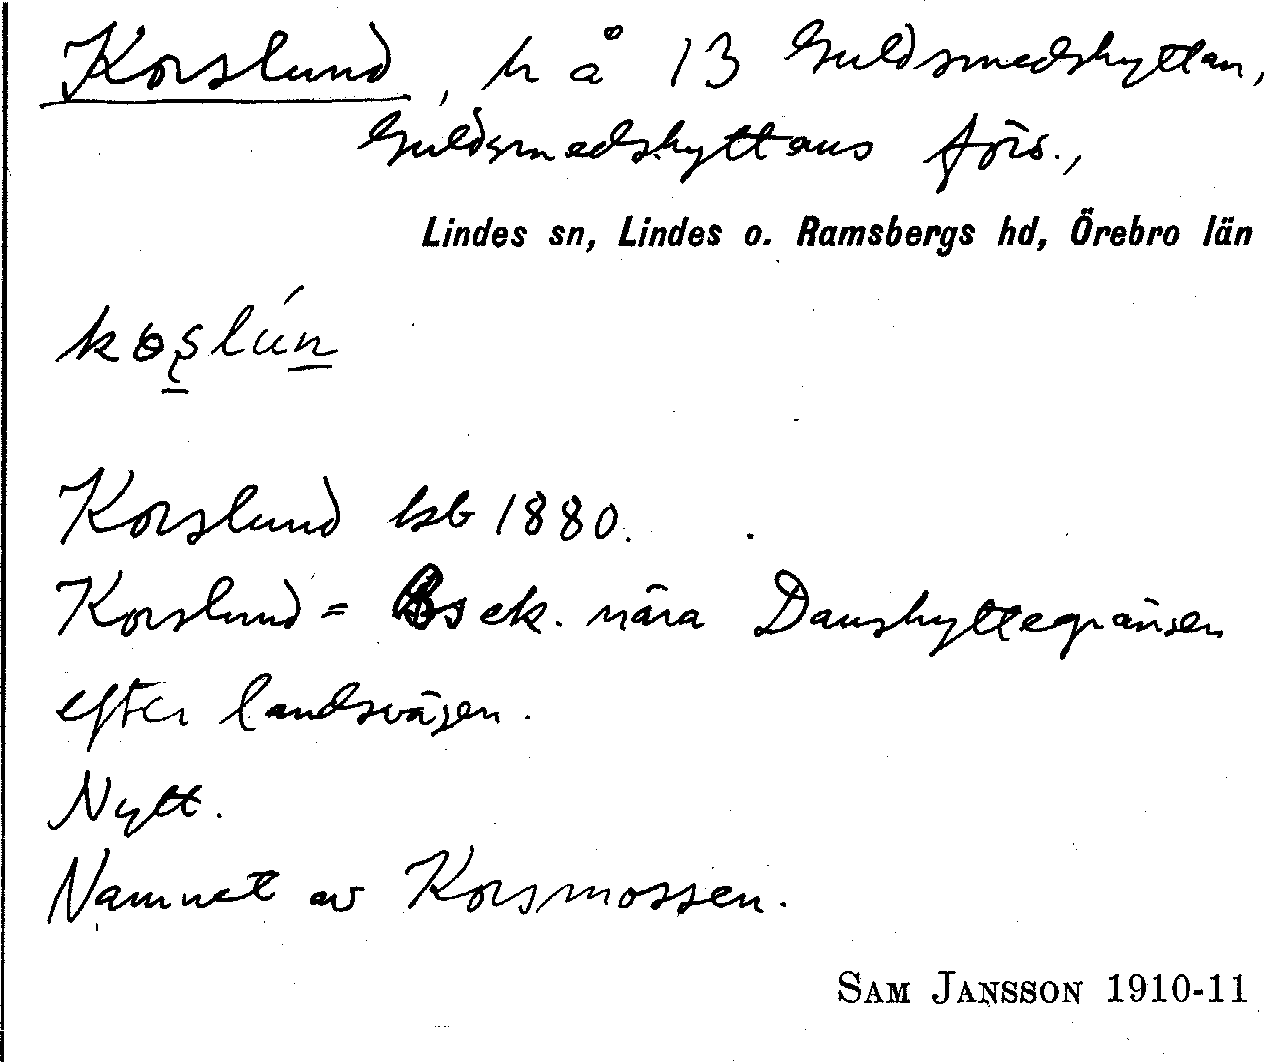 Korslund, h å 13 Guldsmedshyttan,
Guldsmedshyttans förs.,
Lindes sn, Lindes o. Ramsbergs hd, Örebro län
Korslund hsb 1880.
Korslund = Bs ek. nära Danshyttegränsen
efter landsvägen.
Nytt.
Namnet av Korsmossen.
SAM JANSSON 1910-11